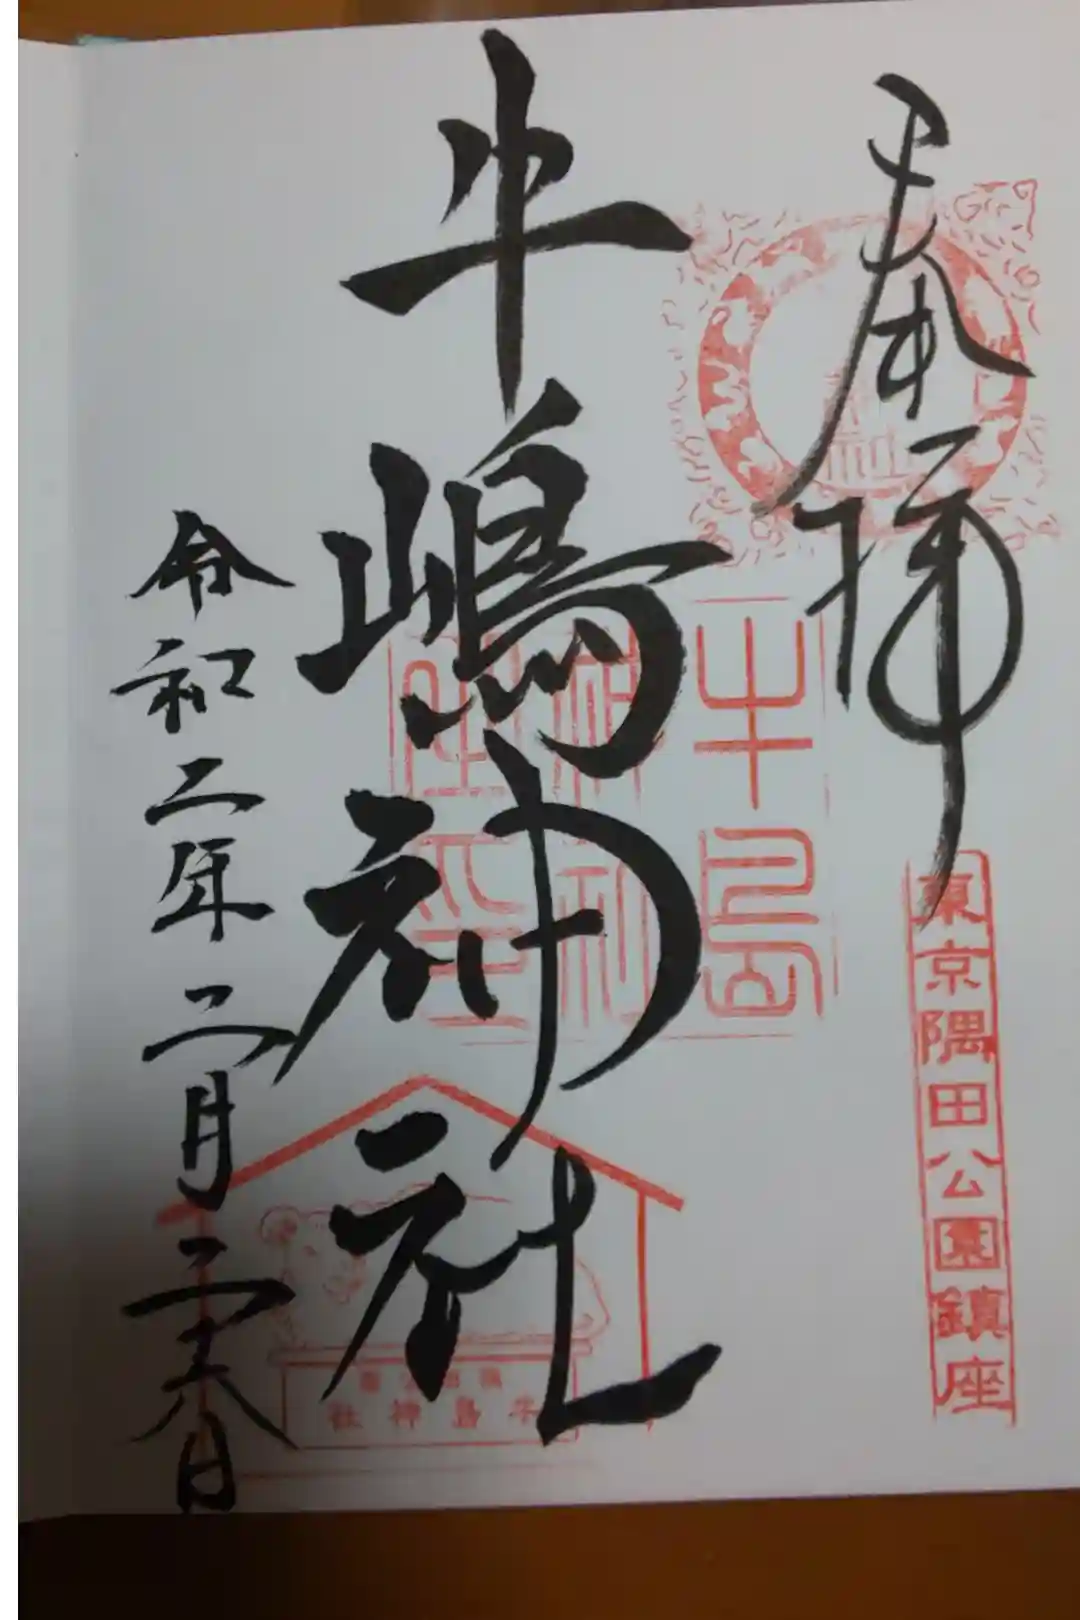 奉拝
東京隅田公園鎮座
牛嶋神社
牛島
神社
令和二年二月二十八日
牛島神社